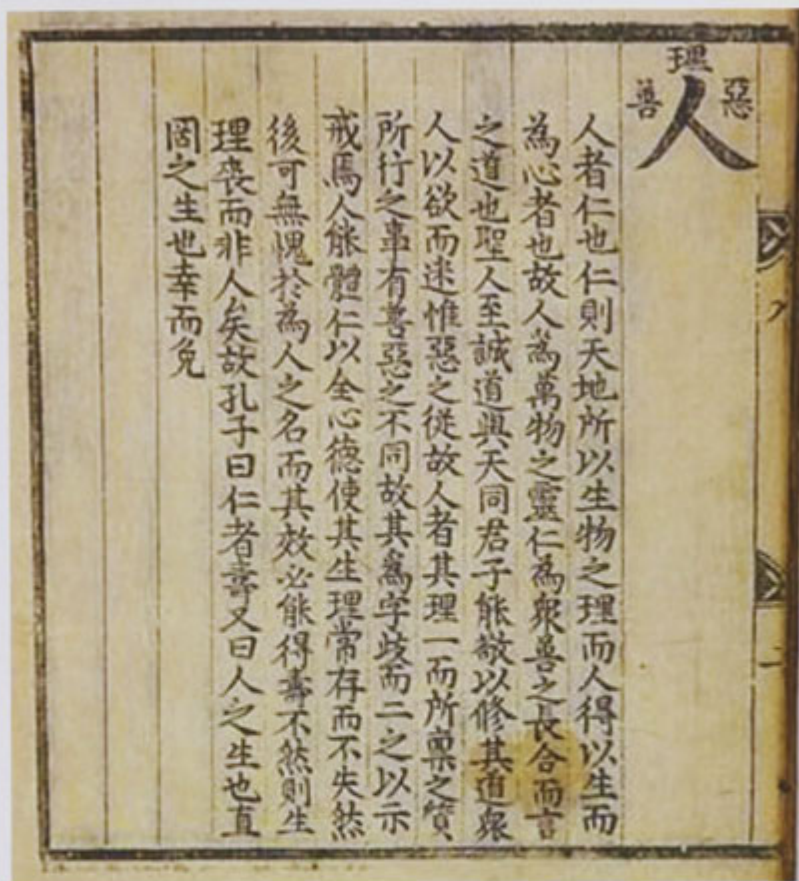 理
善 惡
人
人者仁也仁則天地所以生物之理而人得以生而
為心者也故人為萬物之靈仁為衆善之長合而言
之道也聖人至誠道與天同君子能敬以修其道衆
人以欲而迷惟惡之從故人者其理一而所稟之質
所行之事有善惡之不同故其爲字歧而二之以示
戒焉人能體仁以全心德使其生理常存而不失然
後可無愧於為人之名而其效必能得壽不然則生
理喪而非人矣故孔子曰仁者壽又曰人之生也直
罔之生也幸而免